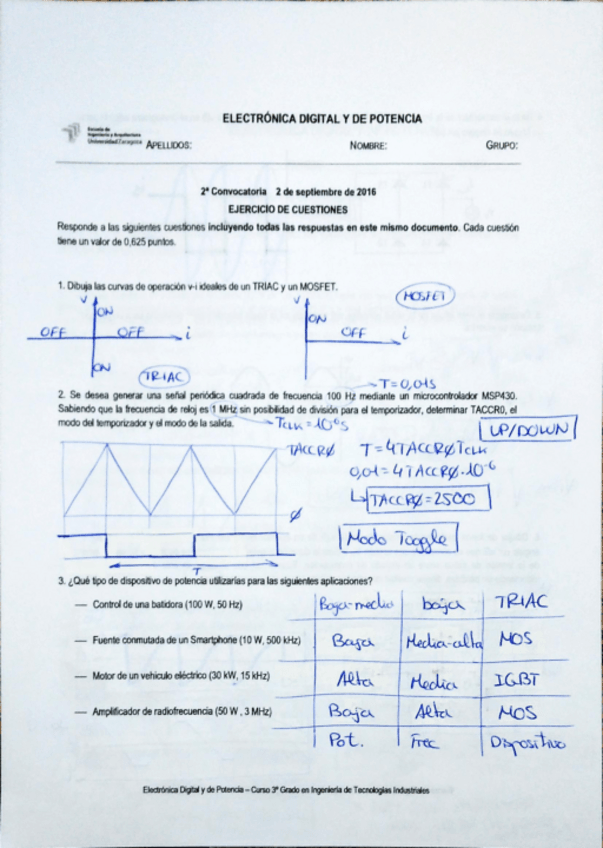 ELECTRÓNICA DIGITAL Y DE POTENCIA
Escuela de
Ingeniería y Arquitectura
Universidad Zaragoza
APELLIDOS: NOMBRE: GRUPO:
2ª Convocatoria 2 de septiembre de 2016
EJERCICIO DE CUESTIONES
Responde a las siguientes cuestiones incluyendo todas las respuestas en este mismo documento. Cada cuestión
tiene un valor de 0,625 puntos.
1. Dibuja las curvas de operación v-i ideales de un TRIAC y un MOSFET.
V ON OFF OFF i ON TRIAC
V ON OFF i MOSFET
T=0,01s
2. Se desea generar una señal periódica cuadrada de frecuencia 100 Hz mediante un microcontrolador MSP430.
Sabiendo que la frecuencia de reloj es 1 MHz sin posibilidad de división para el temporizador, determinar TACCR0, el
modo del temporizador y el modo de la salida.
TCLK=10⁻⁶s
UP/DOWN
TACCRØ T=4TACCRØTCLK
0,01=4TACCRØ·10⁻⁶
TACCRØ=2500
Ø
Modo Toggle
T
3. ¿Qué tipo de dispositivo de potencia utilizarías para las siguientes aplicaciones?
— Control de una batidora (100 W, 50 Hz) Baja-media baja TRIAC
— Fuente conmutada de un Smartphone (10 W, 500 kHz) Baja Media-alta MOS
— Motor de un vehículo eléctrico (30 kW, 15 kHz) Alta Media IGBT
— Amplificador de radiofrecuencia (50 W , 3 MHz) Baja Alta MOS
Pot. Frec Dispositivo
Electrónica Digital y de Potencia – Curso 3º Grado en Ingeniería de Tecnologías Industriales